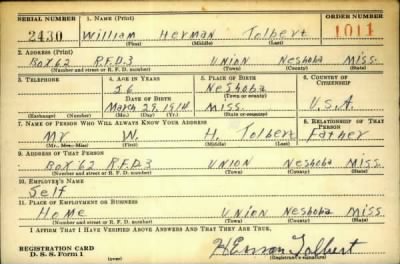 SERIAL NUMBER 1. NAME (Print) ORDER NUMBER
2430 William Herman Tolbert 1011
(First) (Middle) (Last)
2. ADDRESS (Print)
Box 62 R.F.D.3 Union Neshoba Miss.
(Number and street or R. F. D. number) (Town) (County) (State)
3. TELEPHONE 4. AGE IN YEARS 5. PLACE OF BIRTH 6. COUNTRY OF CITIZENSHIP
26 Neshoba
DATE OF BIRTH (Town or county)
March 29, 1914 Miss. U.S.A.
(Exchange) (Number) (Mo.) (Day) (Yr.) (State or country)
7. NAME OF PERSON WHO WILL ALWAYS KNOW YOUR ADDRESS 8. RELATIONSHIP OF THAT PERSON
Mr. W. H. Tolbert Father
(Mr., Mrs., Miss) (First) (Middle) (Last)
9. ADDRESS OF THAT PERSON
Box 62 R.F.D.3 Union Neshoba Miss.
(Number and street or R. F. D. number) (Town) (County) (State)
10. EMPLOYER'S NAME
Self
11. PLACE OF EMPLOYMENT OR BUSINESS
Home Union Neshoba Miss
(Number and street or R. F. D. number) (Town) (County) (State)
I AFFIRM THAT I HAVE VERIFIED ABOVE ANSWERS AND THAT THEY ARE TRUE.
REGISTRATION CARD
D. S. S. Form 1 (over) Herman Tolbert
(Registrant's signature)